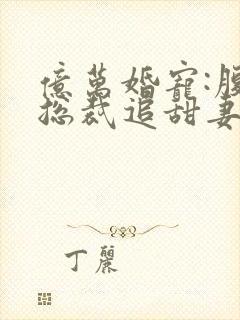 億萬婚寵:腹
總裁追甜妻
丁麗